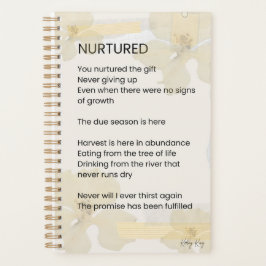 NURTURED
You nurtured the gift
Never giving up
Even when there were no signs
of growth
The due season is here
Harvest is here in abundance
Eating from the tree of life
Drinking from the river that
never runs dry
Never will I ever thirst again
The promise has been fulfilled